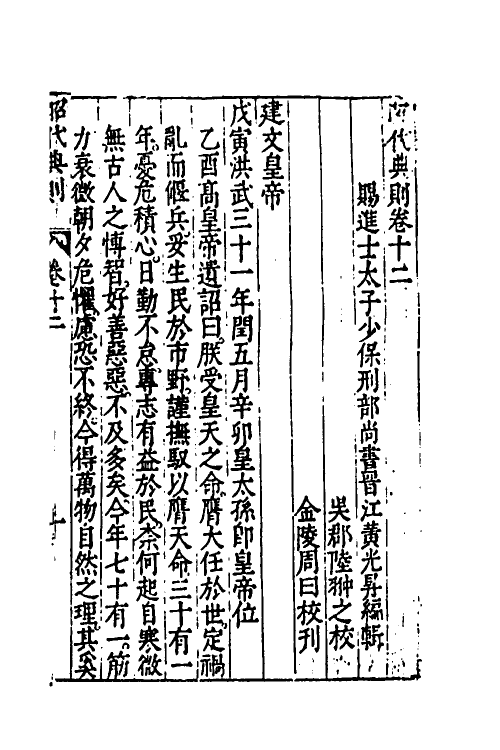 昭代典則卷十二
賜進士太子少保刑部尚書晉江黃光昇編輯
吳郡陸翀之校
金陵周曰校刊
建文皇帝
戊寅洪武三十一年閏五月辛卯皇太孫卽皇帝位
乙酉高皇帝遺詔曰朕受皇天之命膺大任於世定禍
亂而偃兵妥生民於市野謹撫馭以膺天命三十有一
年憂危積心日勤不怠專志有益於民奈何起自寒微
無古人之愽智好善惡惡不及多矣今年七十有一筋
力衰微朝夕危懼慮恐不終今得萬物自然之理其奚
昭代典則
卷十二
一